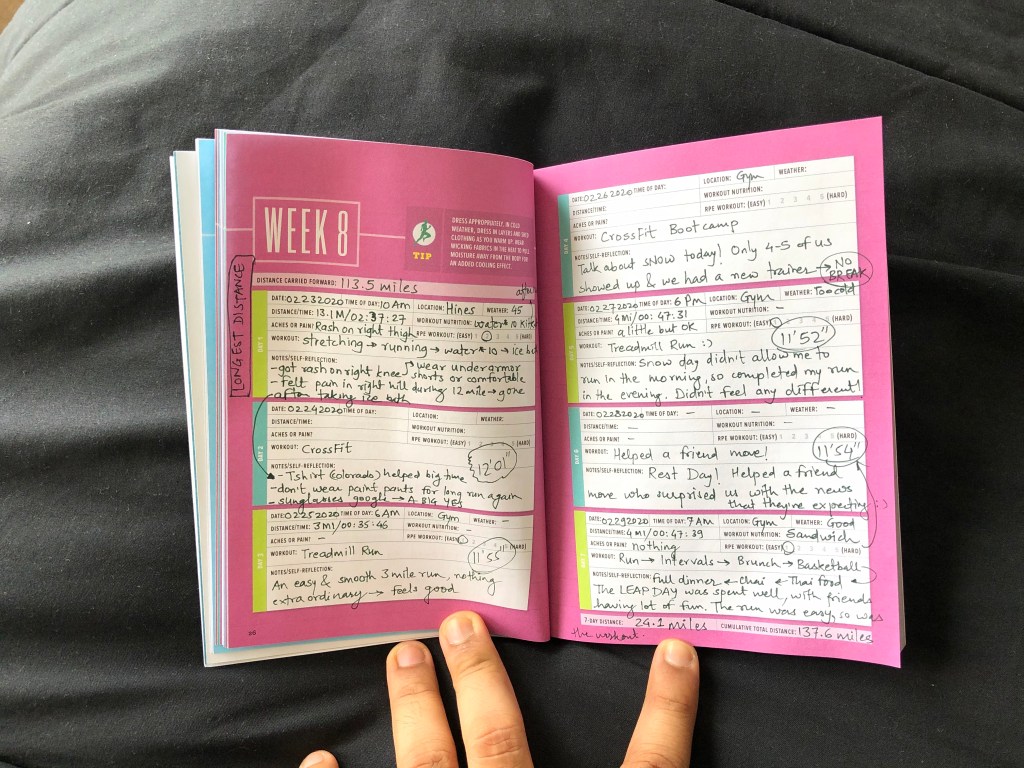 LONGEST DISTANCE
WEEK 8
TIP
DRESS APPROPRIATELY. IN COLD
WEATHER, DRESS IN LAYERS AND SHED
CLOTHING AS YOU WARM UP. WEAR
WICKING FABRICS IN THE HEAT TO PULL
MOISTURE AWAY FROM THE BODY FOR
AN ADDED COOLING EFFECT.
DISTANCE CARRIED FORWARD: 113.5 miles
DAY 1
DATE: 02232020 TIME OF DAY: 10 Am LOCATION: Hines WEATHER: 45
DISTANCE/TIME: 13.1M/02:37:27 WORKOUT NUTRITION: water * 10
ACHES OR PAIN? Rash on right thigh RPE WORKOUT: (EASY) 1 2 3 4 5 (HARD)
WORKOUT: stretching → running → water*10 → ice
NOTES/SELF-REFLECTION: wear underarmor
- got rash on right knee → shorts or comfortable
- felt pain in right during 12 mile → gone
after taking ice bath
DAY 2
DATE: 02242020 TIME OF DAY: LOCATION: WEATHER:
DISTANCE/TIME: WORKOUT NUTRITION:
ACHES OR PAIN? RPE WORKOUT: (EASY) 1 2 3 4 5 (HARD)
WORKOUT: CrossFit
12'01"
NOTES/SELF-REFLECTION:
- Tshirt (Colorado) helped big time
- don't wear paint pants for long run again
- sunglasses google → A BIG YES
DAY 3
DATE: 02252020 TIME OF DAY: 6 Am LOCATION: Gym WEATHER: –
DISTANCE/TIME: 3MI/00:35:46 WORKOUT NUTRITION: –
ACHES OR PAIN? – RPE WORKOUT: (EASY) 1 2 3 4 5 (HARD)
WORKOUT: Treadmill Run
11'55"
NOTES/SELF-REFLECTION:
An easy & smooth 3 mile run, nothing
extraordinary → feels good
26
DAY 4
DATE: 02262020 TIME OF DAY: LOCATION: Gym WEATHER:
DISTANCE/TIME: WORKOUT NUTRITION:
ACHES OR PAIN? RPE WORKOUT: (EASY) 1 2 3 4 5 (HARD)
WORKOUT: CrossFit Bootcamp
NOTES/SELF-REFLECTION:
Talk about SNOW today! Only 4-5 of us
showed up & we had a new trainer → NO BREAK
DAY 5
DATE: 02272020 TIME OF DAY: 6 Pm LOCATION: Gym WEATHER: Too cold
DISTANCE/TIME: 4MI/00:47:31 WORKOUT NUTRITION: –
ACHES OR PAIN? a little but ok RPE WORKOUT: (EASY) 1 2 3 4 5 (HARD)
WORKOUT: Treadmill Run :)
11'52"
NOTES/SELF-REFLECTION: Snow day didn't allow me to
run in the morning, so completed my run
in the evening. Didn't feel any different!
DAY 6
DATE: 02282020 TIME OF DAY: – LOCATION: – WEATHER: –
DISTANCE/TIME: – WORKOUT NUTRITION: –
ACHES OR PAIN? – RPE WORKOUT: (EASY) 1 2 3 4 5 (HARD)
WORKOUT: Helped a friend move!
11'54"
NOTES/SELF-REFLECTION: Rest Day! Helped a friend
move who surprised us with the news
that they're expecting :)
DAY 7
DATE: 02292020 TIME OF DAY: 7 Am LOCATION: Gym WEATHER: Good
DISTANCE/TIME: 4MI/00:47:39 WORKOUT NUTRITION: Sandwich
ACHES OR PAIN? nothing RPE WORKOUT: (EASY) 1 2 3 4 5 (HARD)
WORKOUT: Run → Intervals → Brunch → Basketball
NOTES/SELF-REFLECTION: full dinner ← Chai ← Thai food ←
The LEAP DAY was spent well, with friends
having lot of fun. The run was easy, so was
the workout.
7-DAY DISTANCE: 24.1 miles CUMULATIVE TOTAL DISTANCE: 137.6 miles